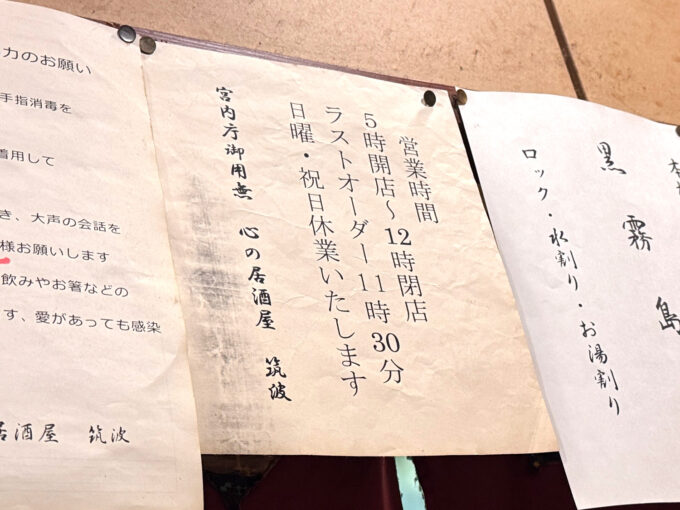 力のお願い
手指消毒を
着用して
き、大声の会話を
様お願いします
飲みやお箸などの
す、愛があっても感染
居酒屋 筑波
営業時間
5時開店~12時閉店
ラストオーダー11時30分
日曜・祝日休業いたします
宮内庁御用無 心の居酒屋 筑波
黒霧島
ロック・水割り・お湯割り